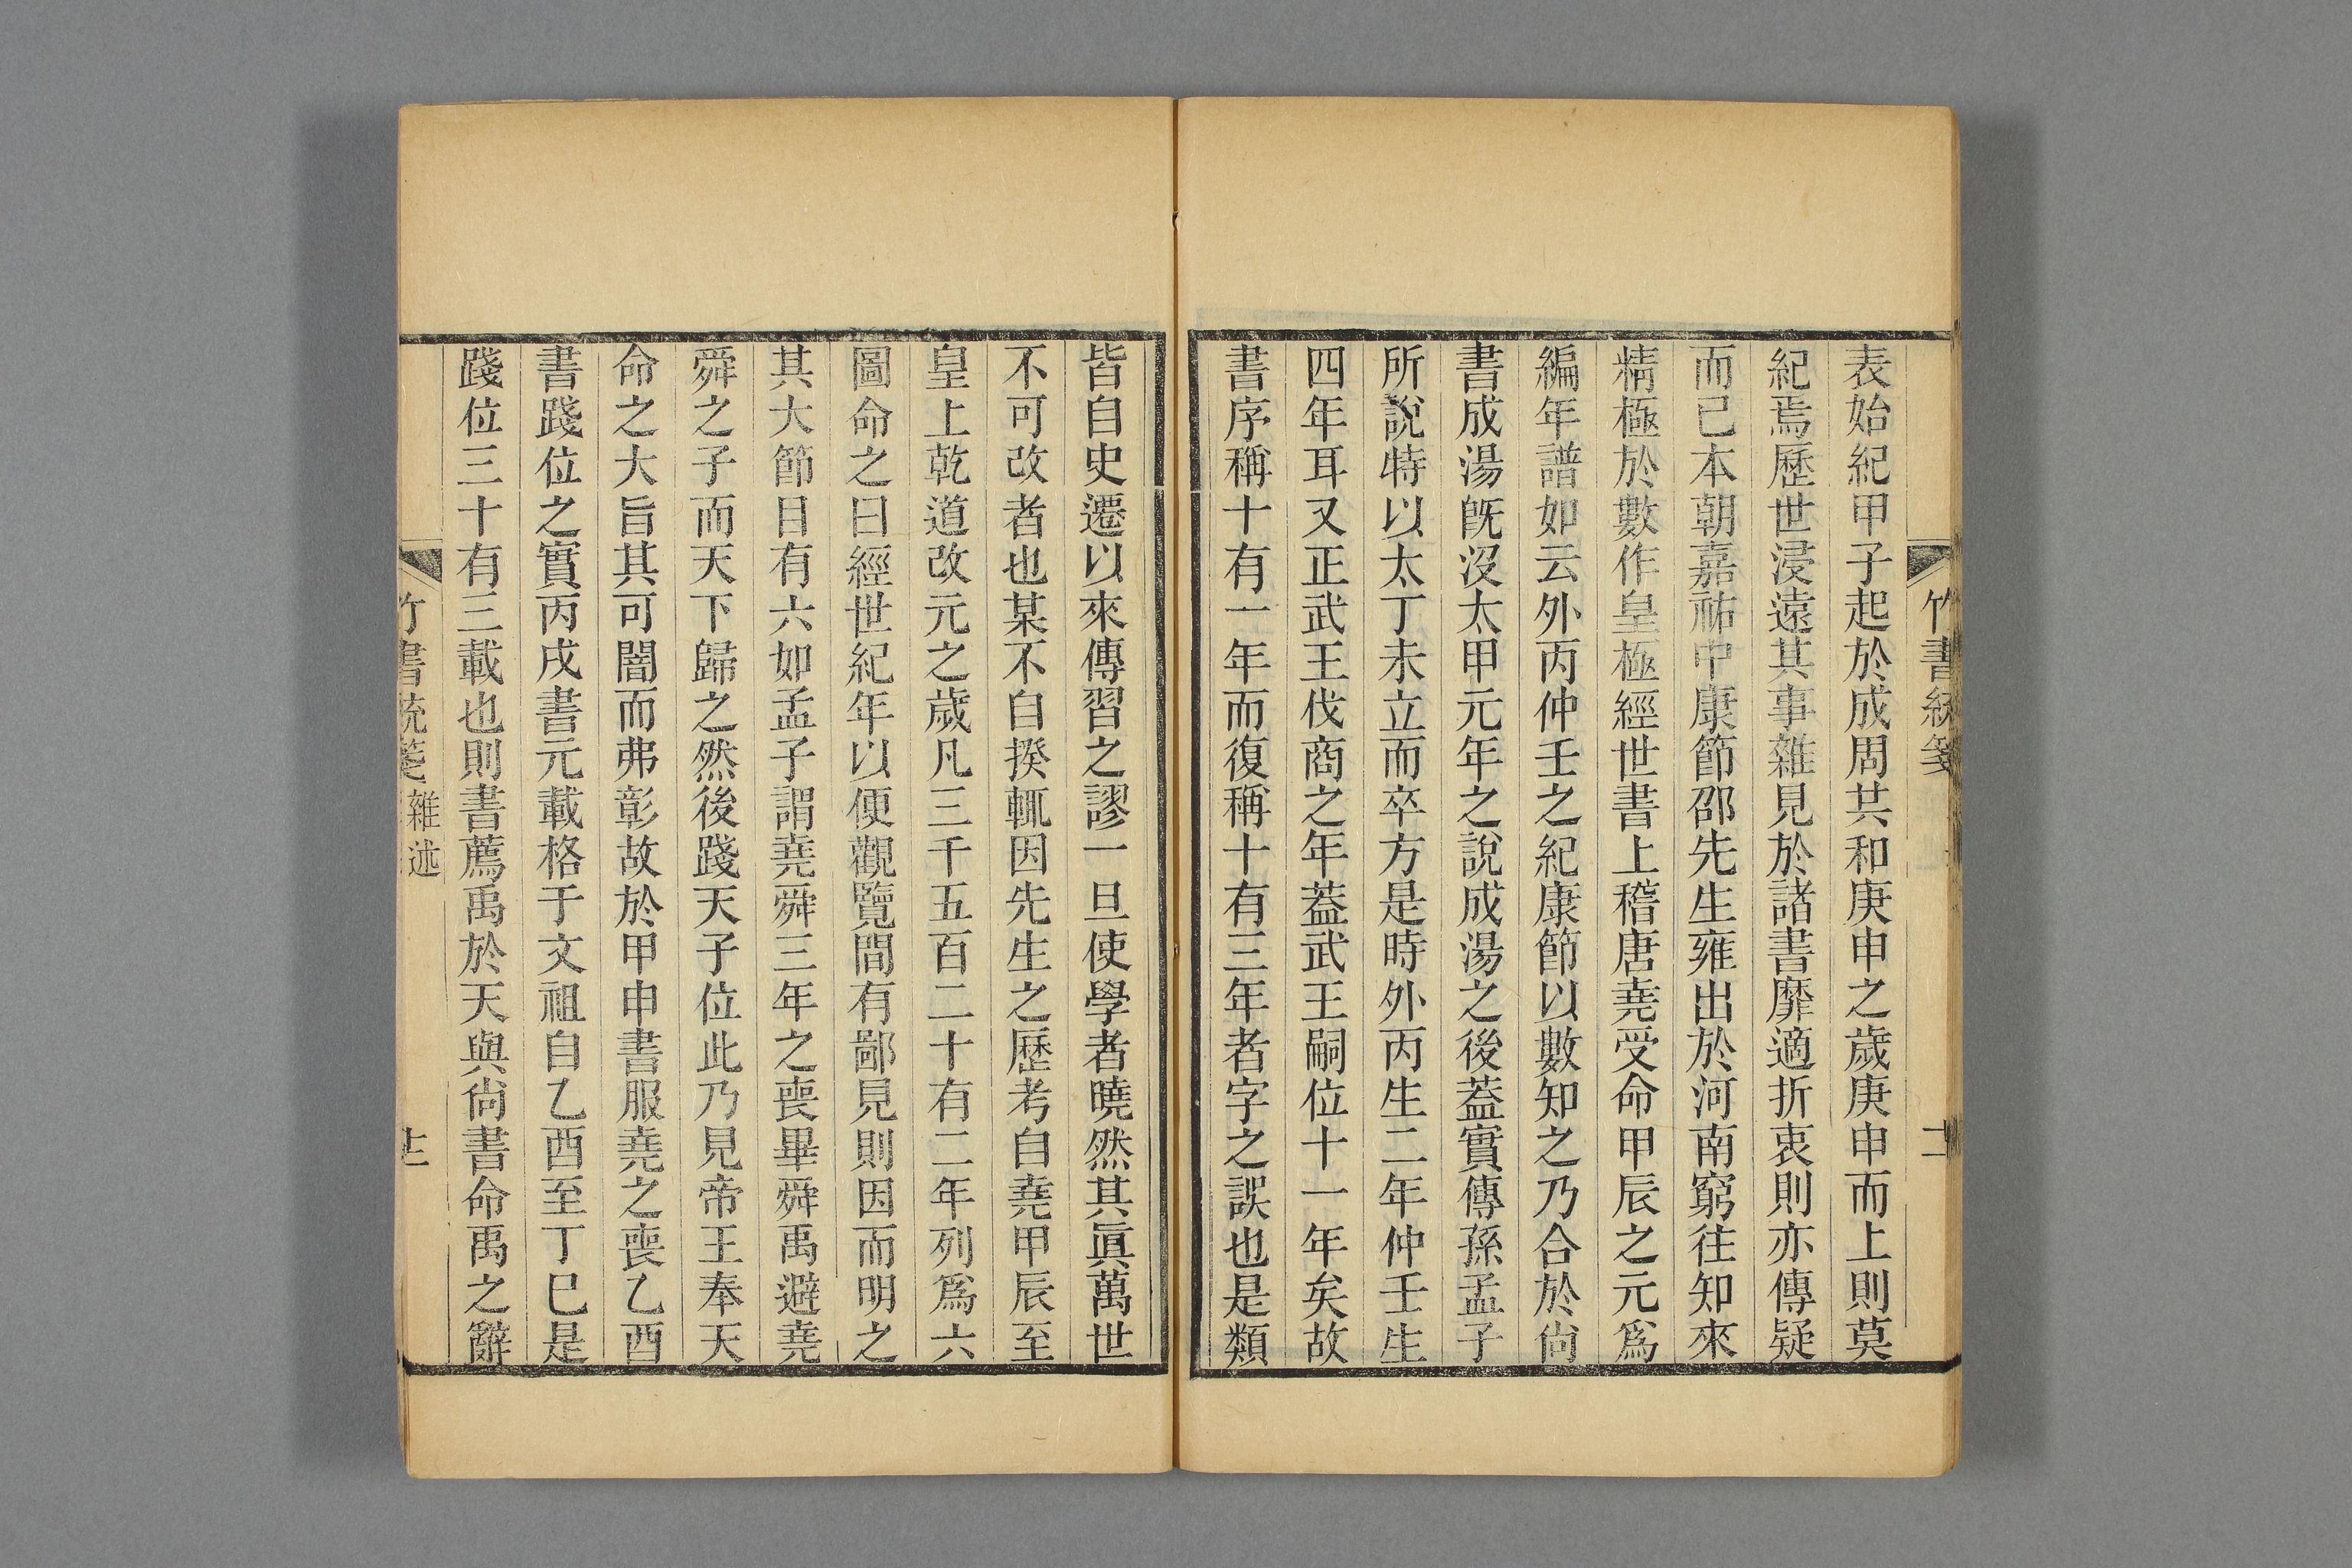 竹書統箋
表始紀甲子起於成周共和庚申之歲庚申而上則莫
紀焉歷世浸遠其事雜見於諸書靡適折衷則亦傳疑
而已本朝嘉祐中康節邵先生雍出於河南窮往知來
精極於數作皇極經世書上稽唐堯受命甲辰之元爲
編年譜如云外丙仲壬之紀康節以數知之乃合於尙
書成湯旣沒太甲元年之說成湯之後蓋實傳孫孟子
所說特以太丁未立而卒方是時外丙生二年仲壬生
四年耳又正武王伐商之年蓋武王嗣位十一年矣故
書序稱十有一年而復稱十有三年者字之誤也是類
皆自史遷以來傳習之謬一旦使學者曉然其眞萬世
不可改者也某不自揆輒因先生之歷考自堯甲辰至
皇上乾道改元之歲凡三千五百二十有二年列爲六
圖命之曰經世紀年以便觀覽間有鄙見則因而明之
其大節目有六如孟子謂堯舜三年之喪畢舜禹避堯
舜之子而天下歸之然後踐天子位此乃見帝王奉天
命之大旨其可闇而弗彰故於甲申書服堯之喪乙酉
書踐位之實丙戌書元載格于文祖自乙酉至丁巳是
踐位三十有三載也則書薦禹於天與尙書命禹之辭
竹書統箋 雜述